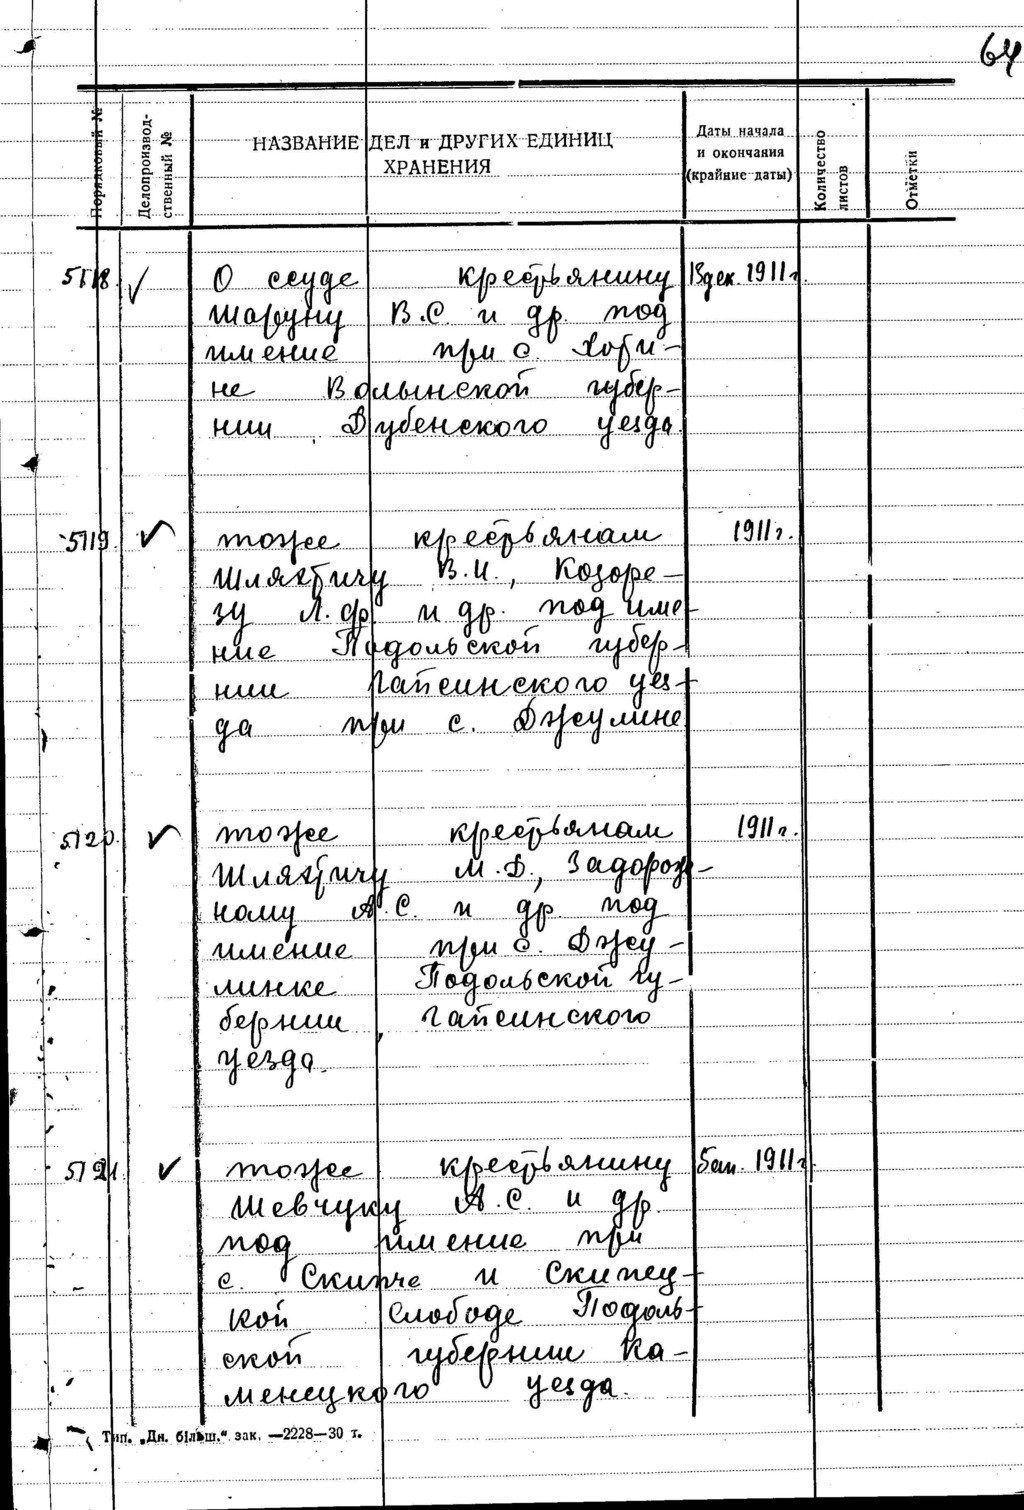 64
Порядковый №
Делопроизвод-
ственный №
НАЗВАНИЕ ДЕЛ и ДРУГИХ ЕДИНИЦ
ХРАНЕНИЯ
Даты начала
и окончания
(крайние даты)
Количество
листов
Отметки
5118. ✓ О ссуде крестьянину 13 дек. 1911 г.
Шаруну В.С. и др. под
имение при с.
не Волынской губер-
нии Дубенского уезда.
5119. ✓ тоже крестьянам 1911 г.
Шляхтичу В.И., Козоре-
зу Л.Ф. и др. под име-
ние Подольской губер-
нии Гайсинского уез-
да при с. Джулине
5120. ✓ тоже крестьянам 1911 г.
Шляхтичу М.Д., Задорож-
ному А.С. и др. под
имение при с. Джу-
линке Подольской гу-
бернии, Гайсинского
уезда.
5121. ✓ тоже крестьянину 1911 г.
Шевчуку А.С. и др.
под имение при
с. Скипче и Скипец-
кой Слободе Подоль-
ской губернии Ка-
менецкого уезда.
Тип. „Дн. більш." зак. —2228—30 т.